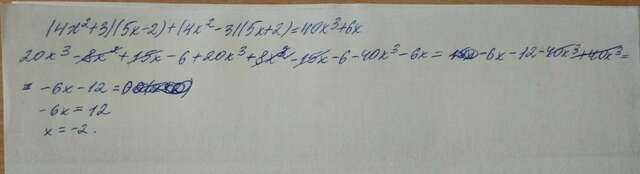 (4x²+3)(5x-2)+(4x²-3)(5x+2)=40x³+6x
20x³-8x²+15x-6+20x³+8x²-15x-6-40x³-6x= -6x-12-40x³+40x³=
= -6x-12=0
-6x=12
x=-2.